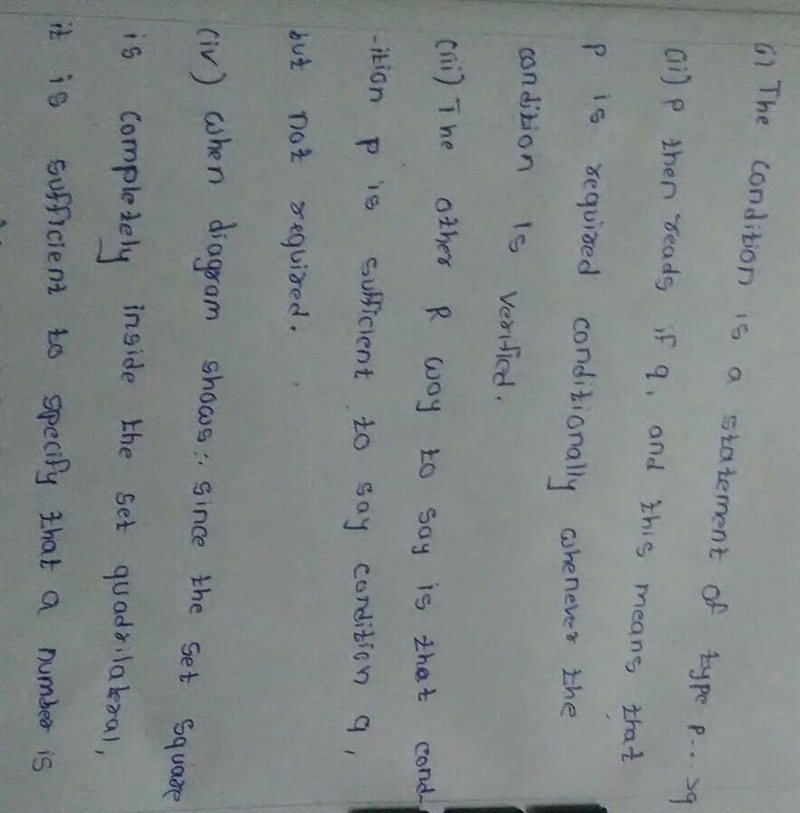 (i) The condition is a statement of type p...>q
(ii) p then reads if q, and this means that
p is required conditionally whenever the
condition is verified.
(iii) The other R way to say is that cond
-ition p is sufficient to say condition q,
but not required.
(iv) when diagram shows:. since the set square
is completely inside the set quadrilateral,
it is sufficient to specify that a number is